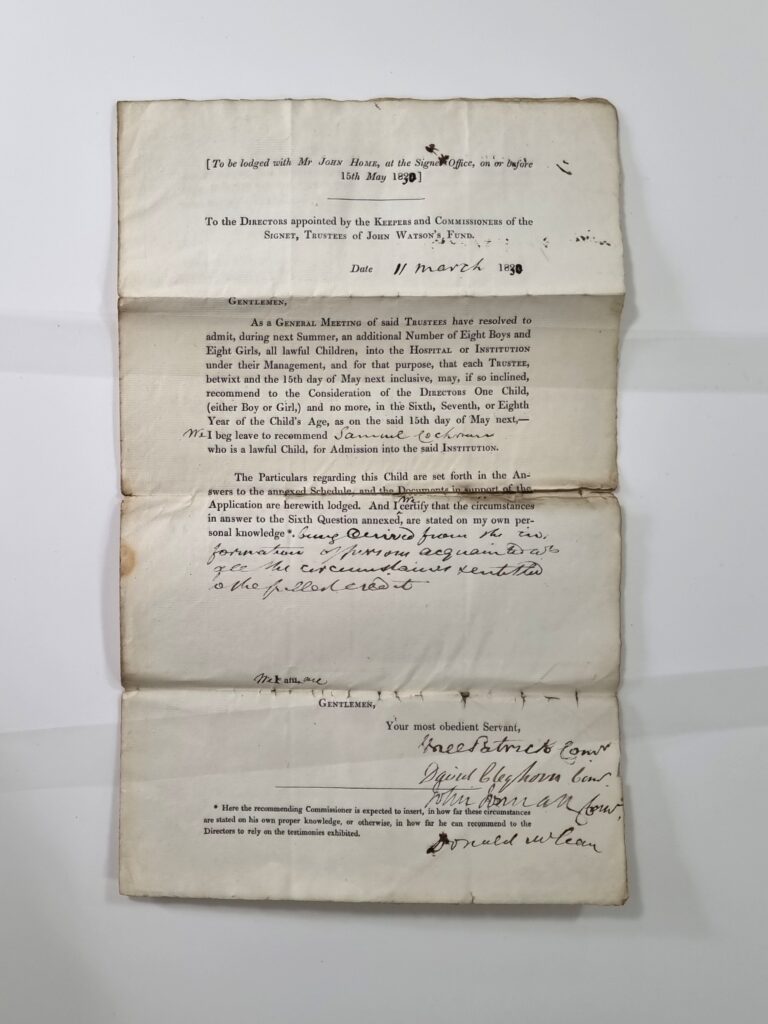 [ To be lodged with Mr JOHN HOME, at the Signet Office, on or before
15th May 1830 ]
To the DIRECTORS appointed by the KEEPERS and COMMISSIONERS of the
SIGNET, TRUSTEES of JOHN WATSON'S FUND.
Date 11 March 1830
GENTLEMEN,
As a GENERAL MEETING of said TRUSTEES have resolved to
admit, during next Summer, an additional Number of Eight Boys and
Eight Girls, all lawful Children, into the HOSPITAL or INSTITUTION
under their Management, and for that purpose, that each TRUSTEE,
betwixt and the 15th day of May next inclusive, may, if so inclined,
recommend to the Consideration of the DIRECTORS One Child,
(either Boy or Girl,) and no more, in the Sixth, Seventh, or Eighth
Year of the Child's Age, as on the said 15th day of May next,—
We I beg leave to recommend Samuel Cochrane
who is a lawful Child, for Admission into the said INSTITUTION.
The Particulars regarding this Child are set forth in the An-
swers to the annexed Schedule, and the Documents in support of the
Application are herewith lodged. And I We certify that the circumstances
in answer to the Sixth Question annexed, are stated on my own per-
sonal knowledge *. being derived from the in
formation of persons acquainted with
all the circumstances & entitled
to the fullest credit
We I am, are
GENTLEMEN,
Your most obedient Servant,
Patrick Comr
David Cleghorn Comr.
John Comr.
Donald McLean
* Here the recommending Commissioner is expected to insert, in how far these circumstances
are stated on his own proper knowledge, or otherwise, in how far he can recommend to the
Directors to rely on the testimonies exhibited.